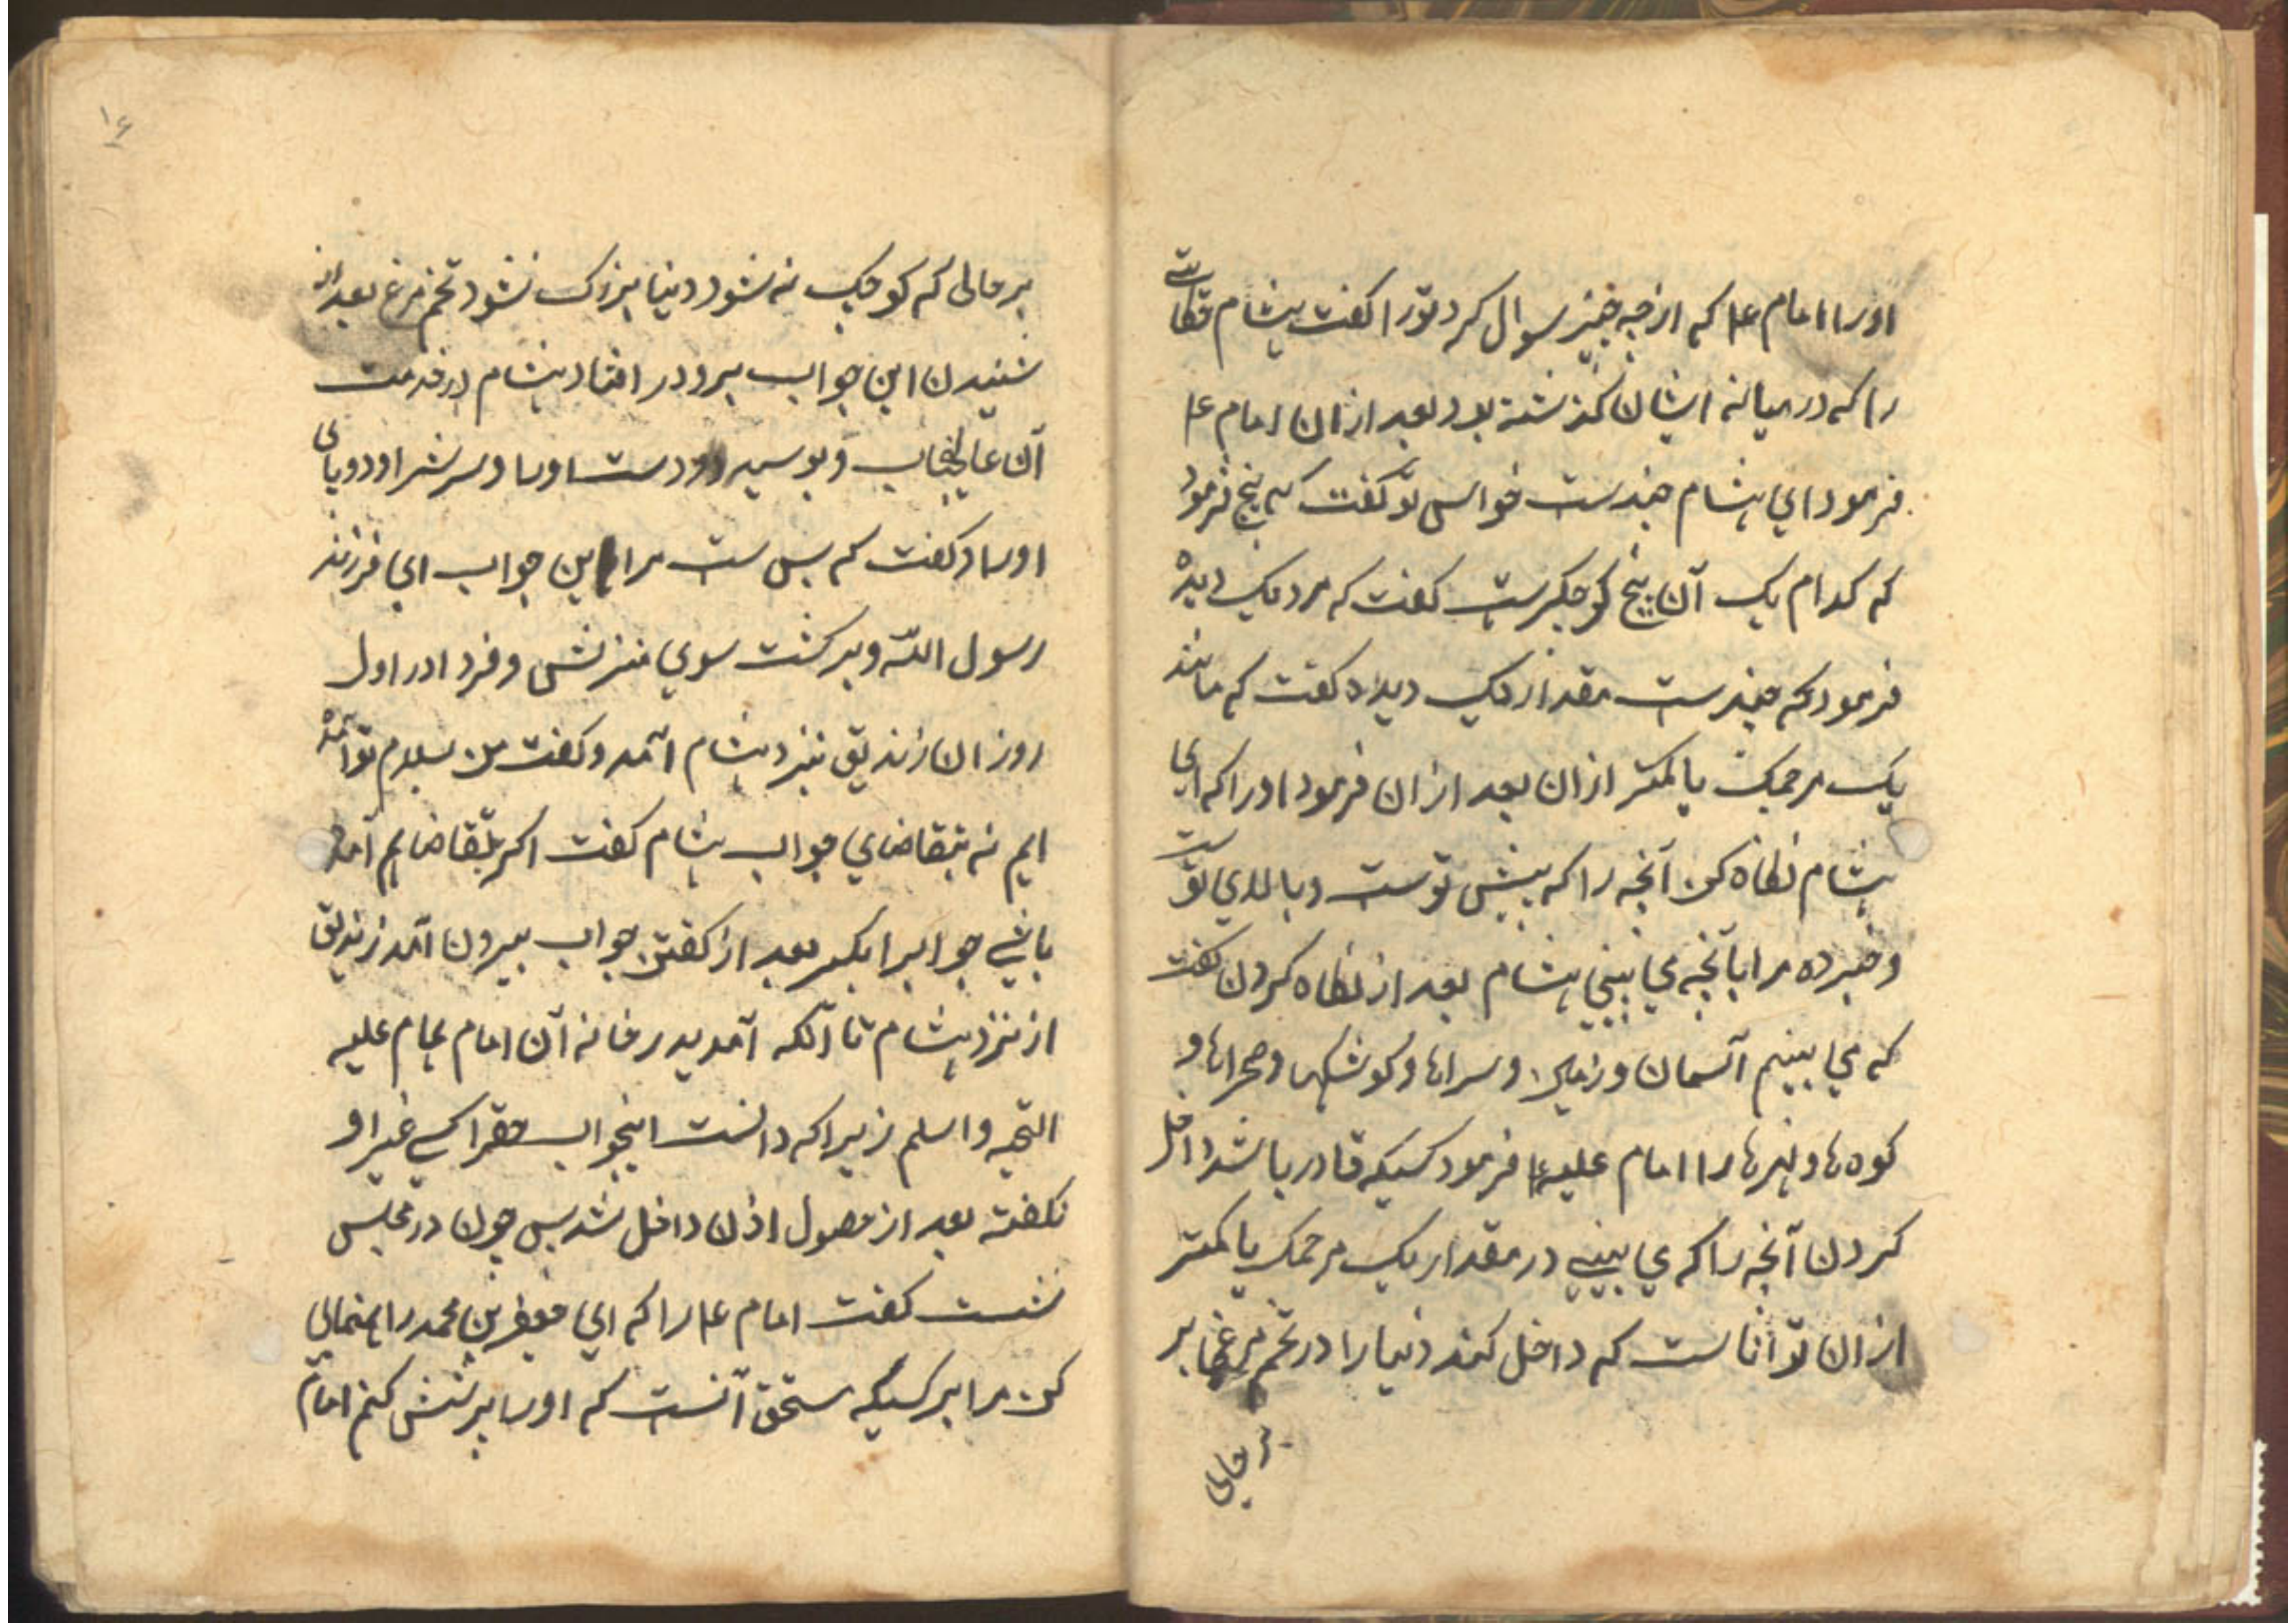 اورا امام ع۴ که از چه چیز سوال کرد تورا کفت هشام حکایتی
را که در میانه ایشان کذشته بود بعد ازان امام ع۴
فرمود ای هشام چندست حواس تو کفت که پنج فرمود
که کدام یک آن پنج کوچکترست کفت که مردمک دیده
فرمود که چندست مقدار مردمک دیده کفت که مانند
یک مرجمک یا کمتر ازان بعد ازان فرمود اورا که ای
هشام نکاه کن آنچه را که پیش توست و بالای توست
و خبر ده مرا بآنچه می بینی هشام بعد از نکاه کردن کفت
که می بینم آسمان و زمین و سراها و کوشکها و صحراها و
کوه ها و نهرها را امام علیه۴ فرمود کسیکه قادر باشد داخل
کردن آنچه را که می بینی در مقدار یک مرجمک یا کمتر
ازان توانا ست که داخل کند دنیا را در تخم مرغ بر
بر حالی
۱۶
بر حالی که کوچک نه شود دنیا بزرک نشود تخم مرغ بعد از
شنیدن این جواب برو در افتاد هشام در خدمت
آن عالیجناب و بوسید دو دست اورا و سر شرا و دو پای
اورا و کفت که بس ست مرا این جواب ای فرزند
رسول الله و برکشت سوی منزلش و فردا در اول
روز ان زندیق نزد هشام آمد و کفت من بسلام تو آمده
ایم نه بتقاضای جواب هشام کفت اکر بتقاضا هم آمده
باشی جوابرا بکیر بعد از کفتن جواب بیرون آمد زندیق
از نزد هشام تا آنکه آمد بدر خانه آن امام همام علیه
التحیه واسلم زیرا که دانست اینجواب حقرا کسی غیر او
نکفته بعد از حصول اذن داخل شد پس چون در مجلس
نشست کفت امام ع۴ را که ای جعفر بن محمد راهنمایی
کن مرا بر کسیکه مستحق آنست که اورا پرستش کنم امام